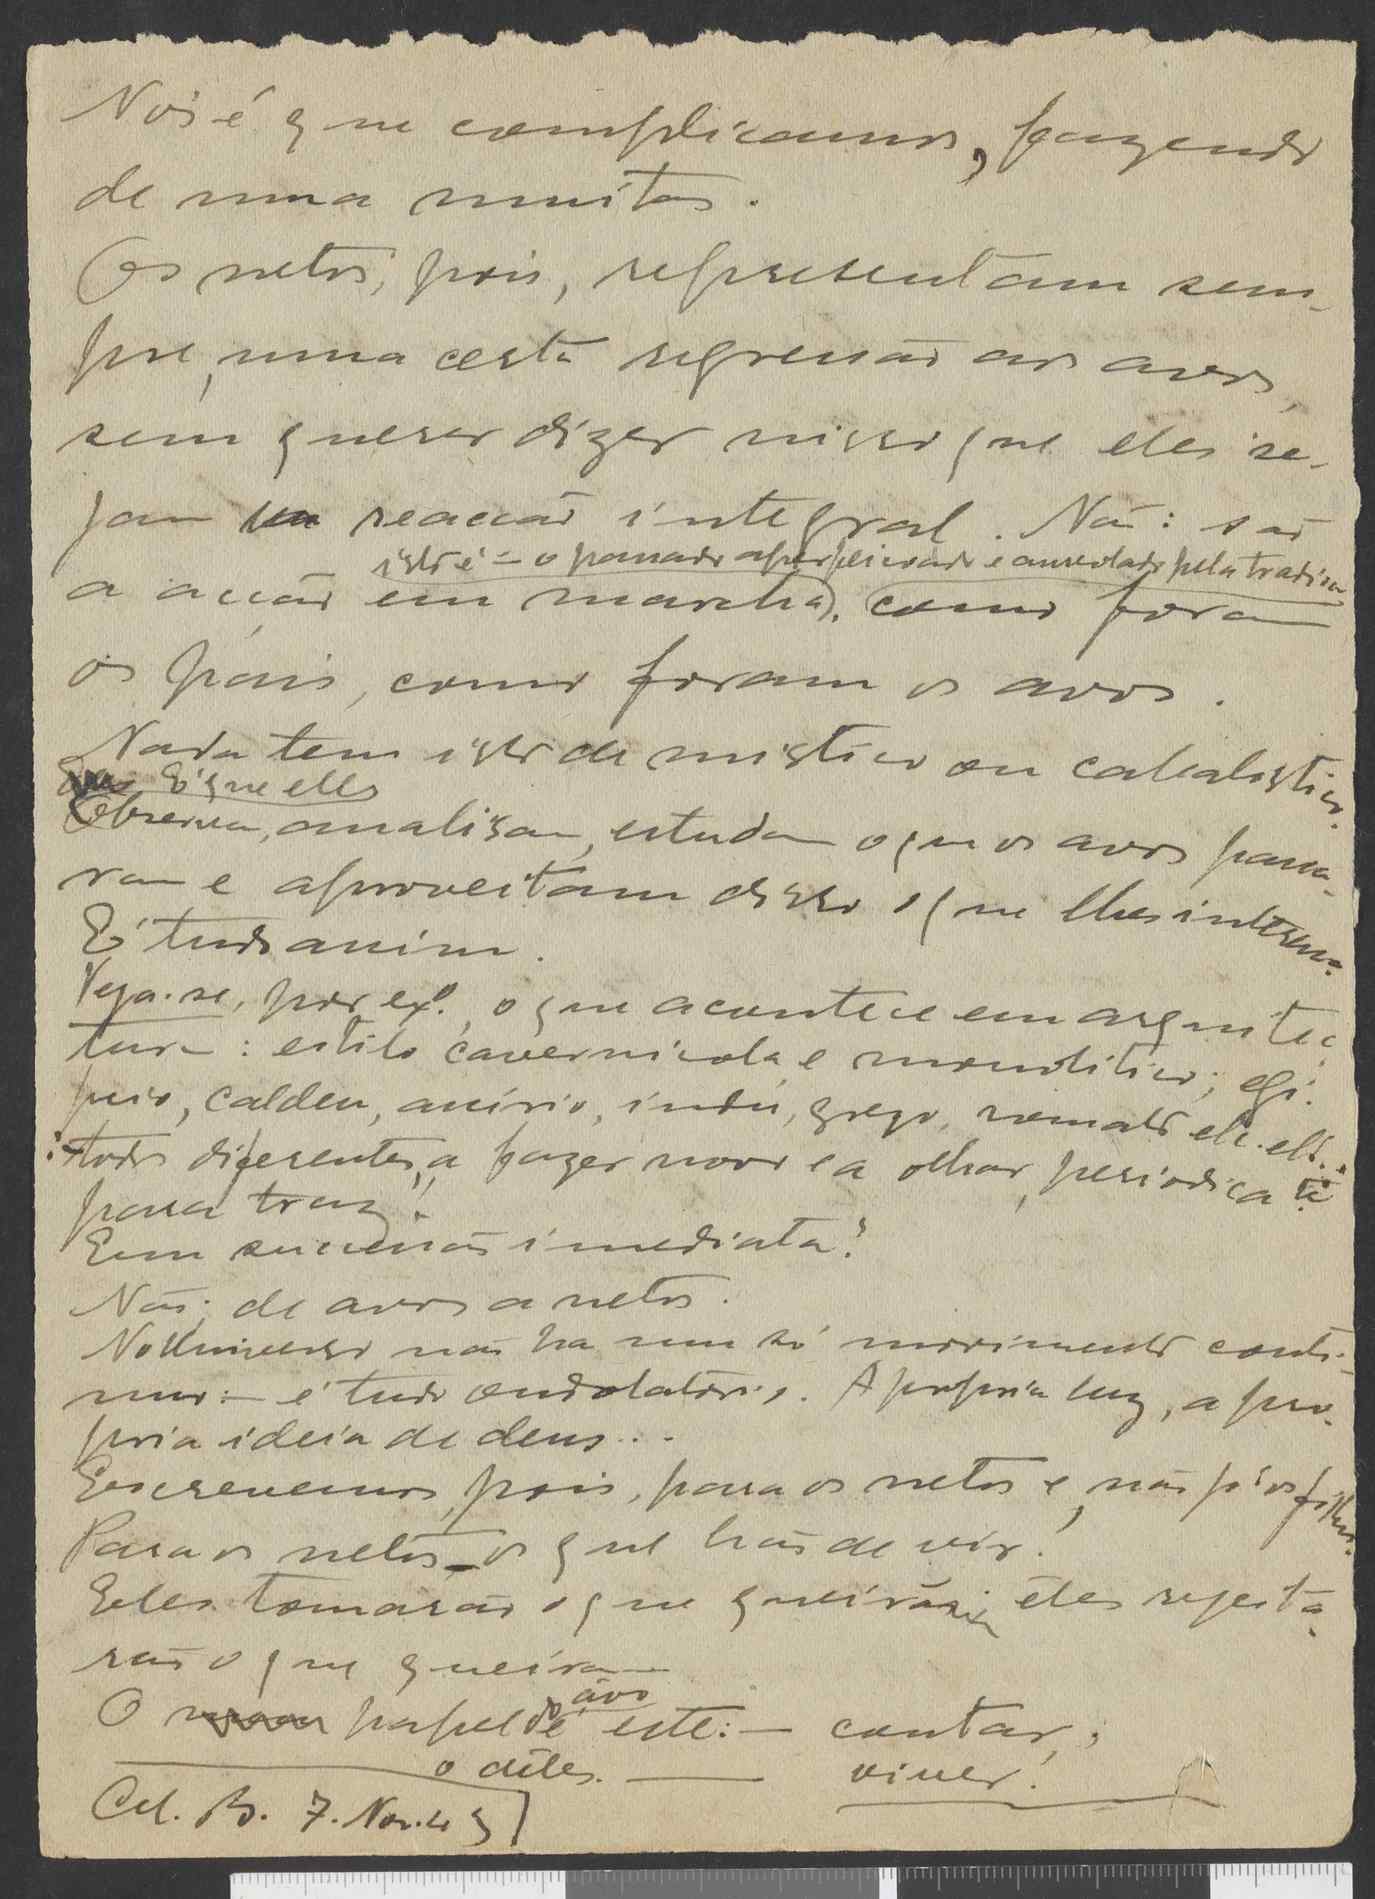 Nós é que complicamos, fazendo
de uma muitas.
Os netos, pois, representam sem-
pre, uma certa regressão aos avós,
sem querer dizer nisso que eles se-
jam reacção integral. Não: são
isto é - o passado aperfeiçoado e aureolado pela tradição
a acção em marcha), como foram
os pais, como foram os avós.
Nada tem isto de mistico ou cabalistico.
É que elles
Observam, analisam, estudam o que os avós passa-
ram e aproveitam disso o que lhes interessa.
É tudo assim.
Veja-se, por exº., o que acontece em arquitec-
tura: estilo cavernicola e monolitico; egi-
pcio, caldeu, assirio, indú, grego, romano etc. etc.:
: todos diferentes, a fazer novo e a olhar, periodicate
para traz!
Em sucessão imediata?
Não: de avós a netos.
No Universo não ha um só movimento conti-
nuo: - é tudo ondolatorio. A propria luz, a pro-
pria ideia de deus...
Escrevemos, pois, para os netos e, não pª os filhos.
Para os netos - os que hão de vir!
Eles tomarão o que queiram; eles rejeita-
rão o que queiram
O papel do avô é este: - contar;
o deles. — viver!
Cel. B. 7. Nov. 45